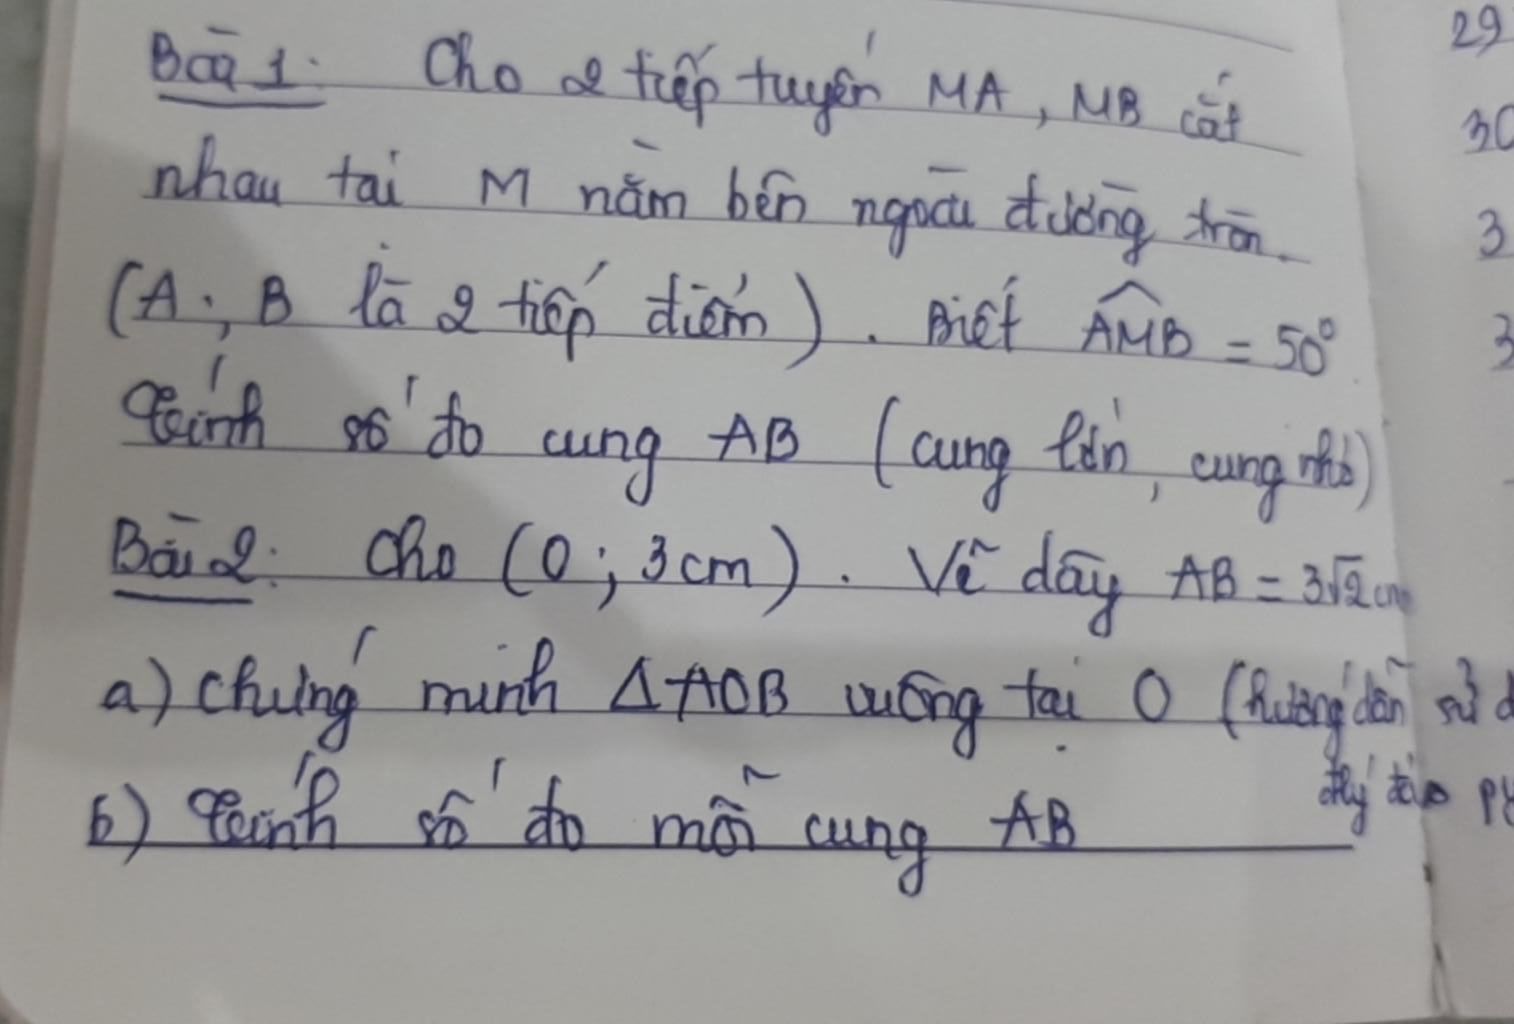 Bài 1: Cho 2 tiếp tuyến MA, MB cắt
nhau tại M nằm bên ngoài đường tròn.
(A; B là 2 tiếp điểm). Biết AMB = 50°
Tính số đo cung AB (cung lớn, cung nhỏ)
Bài 2: Cho (O; 3cm). Vẽ dây AB = 3√2 cm
a) Chứng minh ΔAOB vuông tại O (hướng dẫn sử
đlý đảo
b) Tính số đo mỗi cung AB
29
30
3
3